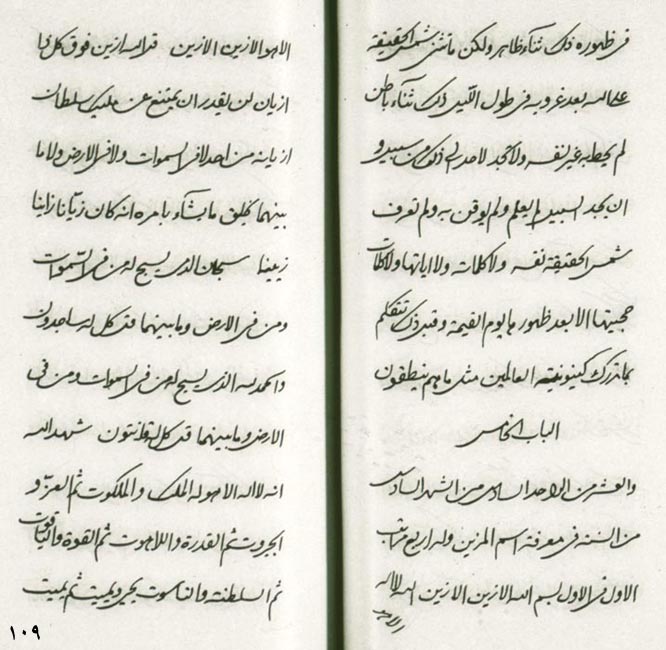 فی ظهوره ذلک ثناء ظاهر ولکن ماتثنی شمس الحقیقة
علی الله بعد غروبه فی طول اللیل ذلک ثناء باطن
لم یحط به غیر نفسه ولا تجد لاحد الی ذلک من سبیل و
ان یجد السبیل لم یعلم ولم یوقن به ولم تعرف
شمس الحقیقة نفسه ولا کلماته ولا ایاتها ولا کلمات
حجیتها الا بعد ظهورها یوم القیمة وقبل ذلک تتکلم
بما تدرک کینونیته العالمین مثل ماهم ینطقون
الباب الخامس
والعشر من الواحد السادس من الشهر السادس
من السنة فی معرفة اسم المزین وله اربع مراتب
الاول فی الاول بسم الله الازین الازین الله لااله
الا هو الازین الازین قل الله ازین فوق کل ذا
ازیان لن یقدر ان یمتنع عن ملیک سلطان
ازیانه من احد لا فی السموات ولا فی الارض ولا ما
بینهما یخلق ما یشاء بامره انه کان زیانا زاینا
زیینا سبحان الذی یسبح له من فی السموات
ومن فی الارض وما بینهما قل کل له ساجدون
والحمد لله الذی یسبح له من فی السموات ومن فی
الارض وما بینهما قل کل له قانتون شهد الله
انه لااله الا هو له الملک والملکوت ثم العز و
الجبروت ثم القدرة واللاهوت ثم القوة والیاقوت
ثم السلطنة والناسوت یحیی ویمیت ثم یمیت
۱۰۹